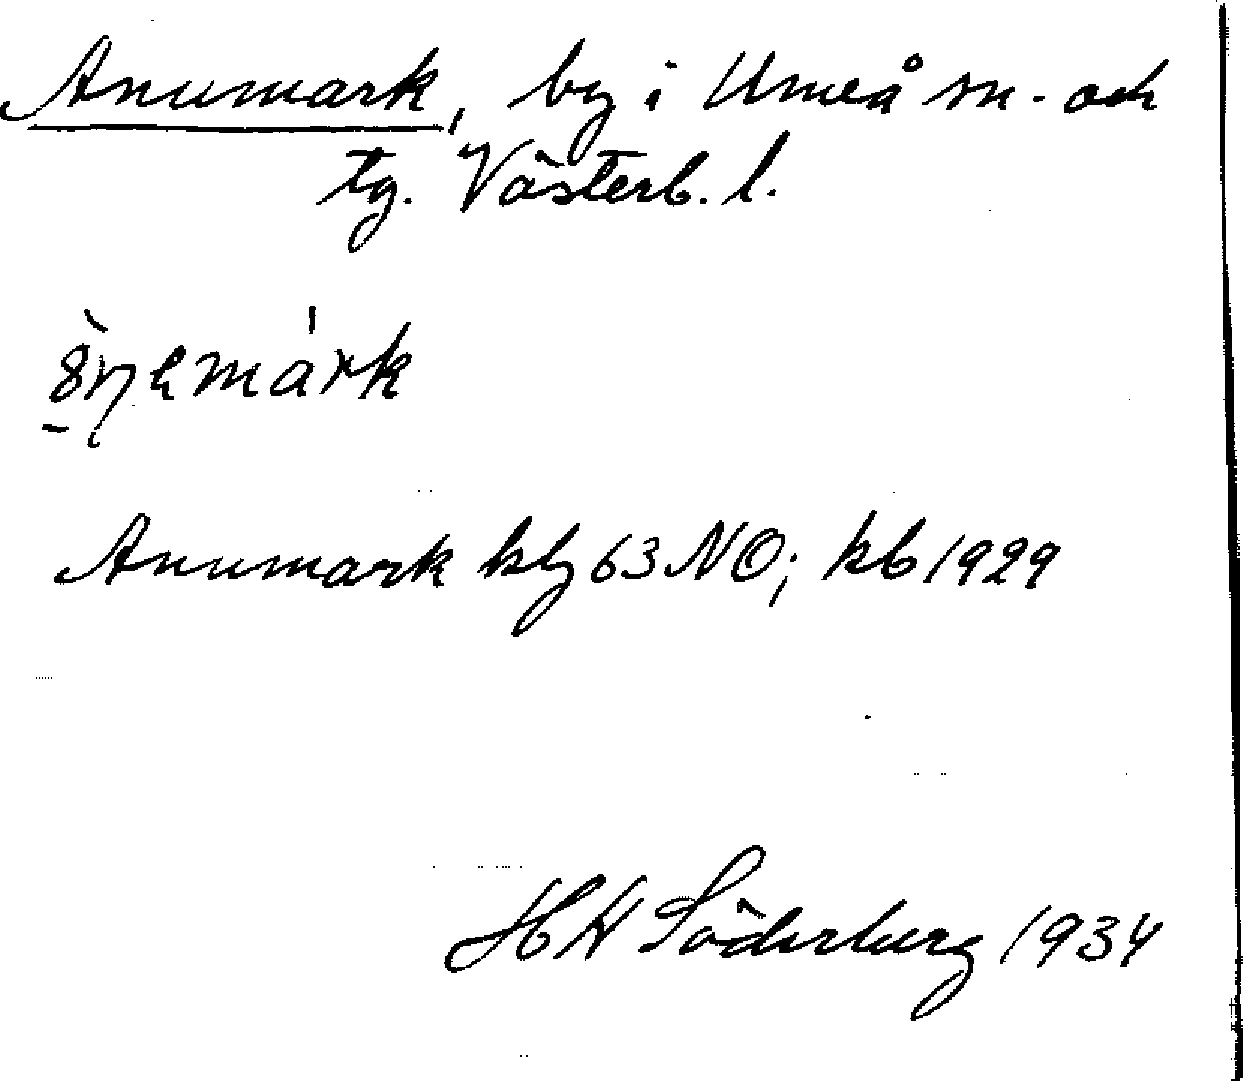 Anumark, by i Umeå sn. och
tg. Västerb. l.
Anumark kbl 63 NO; kb 1929
H H Söderberg 1934